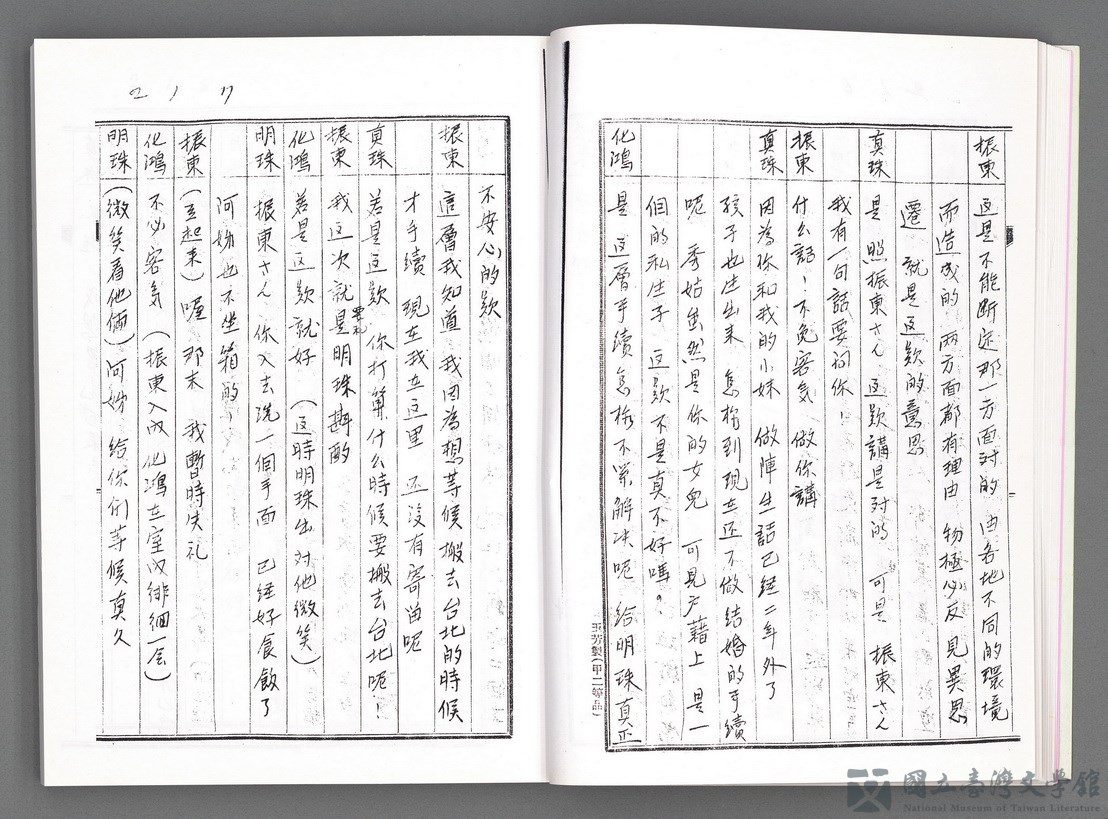 振東 這是不能斷定那一方面对的 由各地不同的環境
而造成的 兩方面都有理由 物極必反 見異思
遷 就是這款的意思
真珠 是 照振東さん 這款講是对的 可是 振東さん
我有一句話要问你！
振東 什么話！不免客気 做你講
真珠 因為你和我的小妹 做陣生活已經二年外了
孩子也生出來 怎樣到現在还不做结婚的手續
呢 秀姑虽然是你的女兒 可見户籍上 是一
個的私生子 這款不是真不好嗎？
化鴻 是 這層手續怎樣不緊解决呢 给明珠真正
玉芳製(甲二等品)
217
不安心的款
振東 這層我知道 我因為想等候搬去台北的時候
才手續 現在我在這里 还没有寄留呢
真珠 若是這款 你打算什么時候要搬去台北呢！
振東 我這次就是要和明珠斟酌
化鴻 若是這款就好 (這時明珠出 对他微笑)
明珠 振東さん 你入去洗一個手面 已經好食飯了
阿姊也不坐箱的！
振東 (立起來) 喔 那末 我暫時失礼
化鴻 不必客気 (振東入内 化鴻在室内徘徊一会)
明珠 (微笑看他倆) 阿姊 给你们等候真久
國立臺灣文學館
National Museum of Taiwan Literature